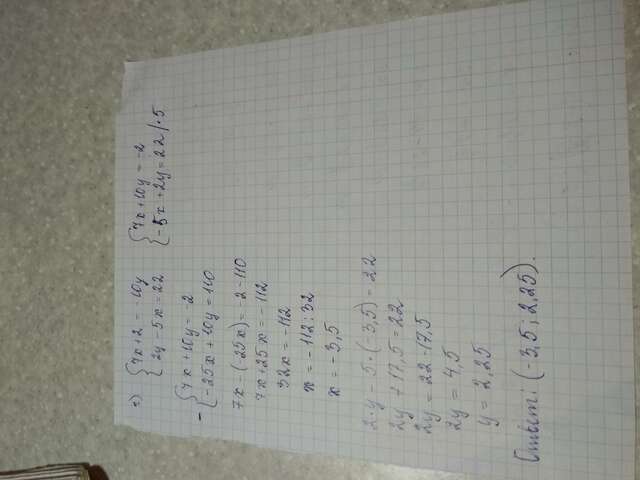 {7x+2=-10y
{2y-5x=22
{7x+10y=-2
{-5x+2y=22/·5
-{7x+10y=-2
{-25x+10y=110
7x-(-25x)=2-110
7x+25x=-112
32x=-112
x=-112:32
x=-3,5
2·y-5·(-3,5)=22
2y+17,5=22
2y=22-17,5
2y=4,5
y=2,25
Ответ: (-3,5; 2,25).